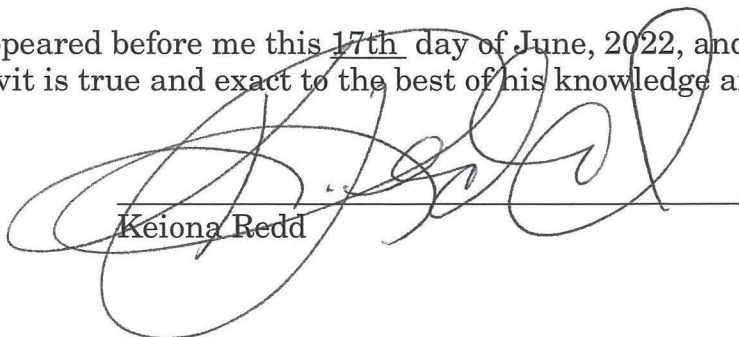 peared before me this 17th day of June, 2022, and
vit is true and exact to the best of his knowledge a
Keiona Redd